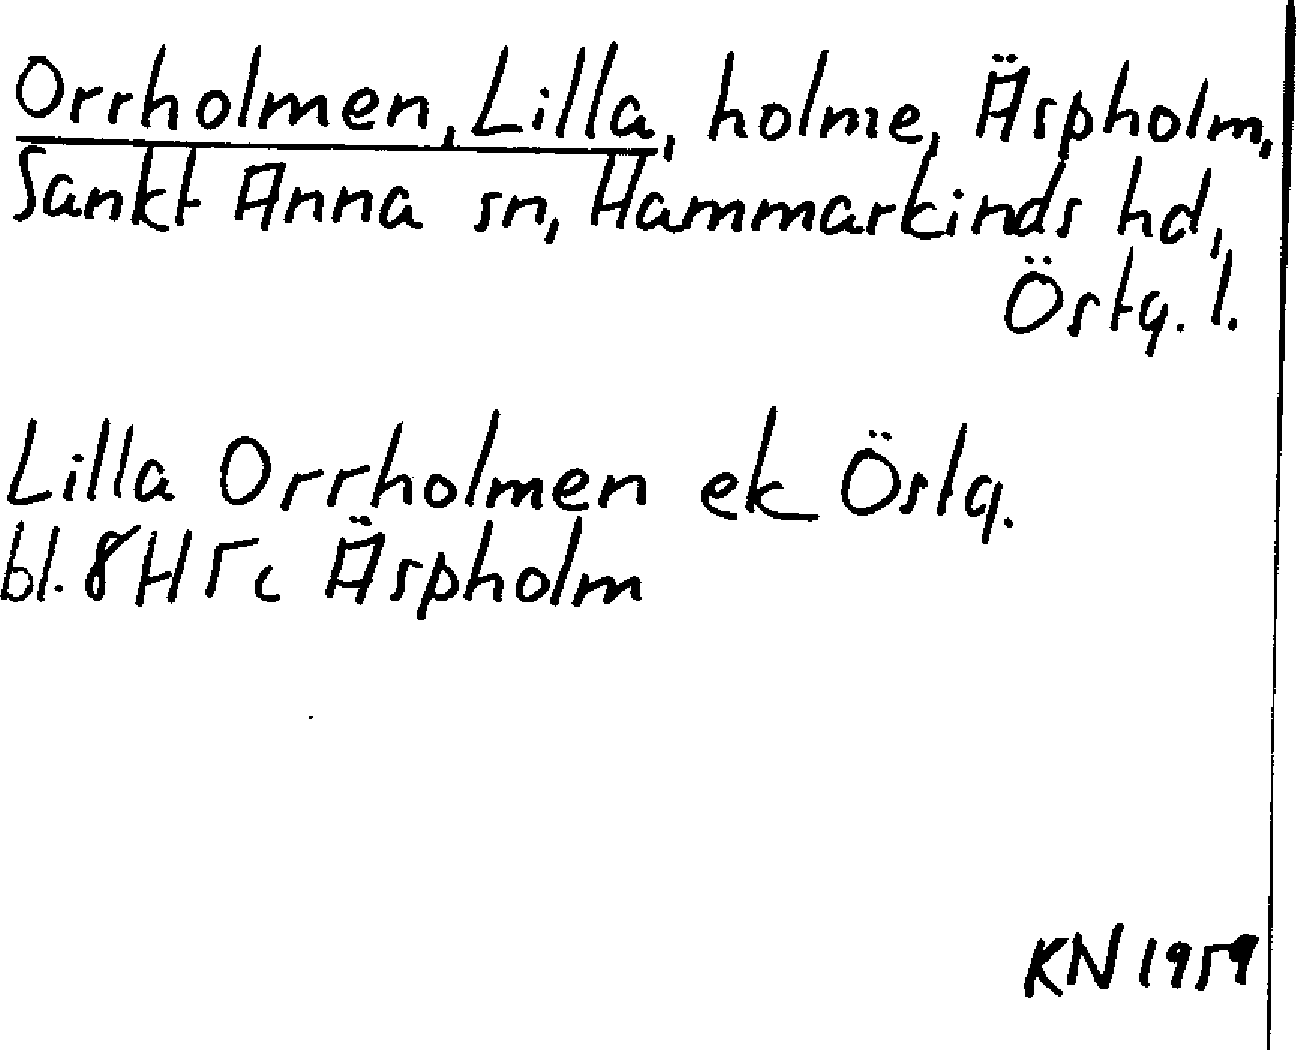 Orrholmen, Lilla, holme, Äspholm,
Sankt Anna sn, Hammarkinds hd,
Östg. l.
Lilla Orrholmen ek Östg.
bl. 8H 5c Äspholm
KN 1959